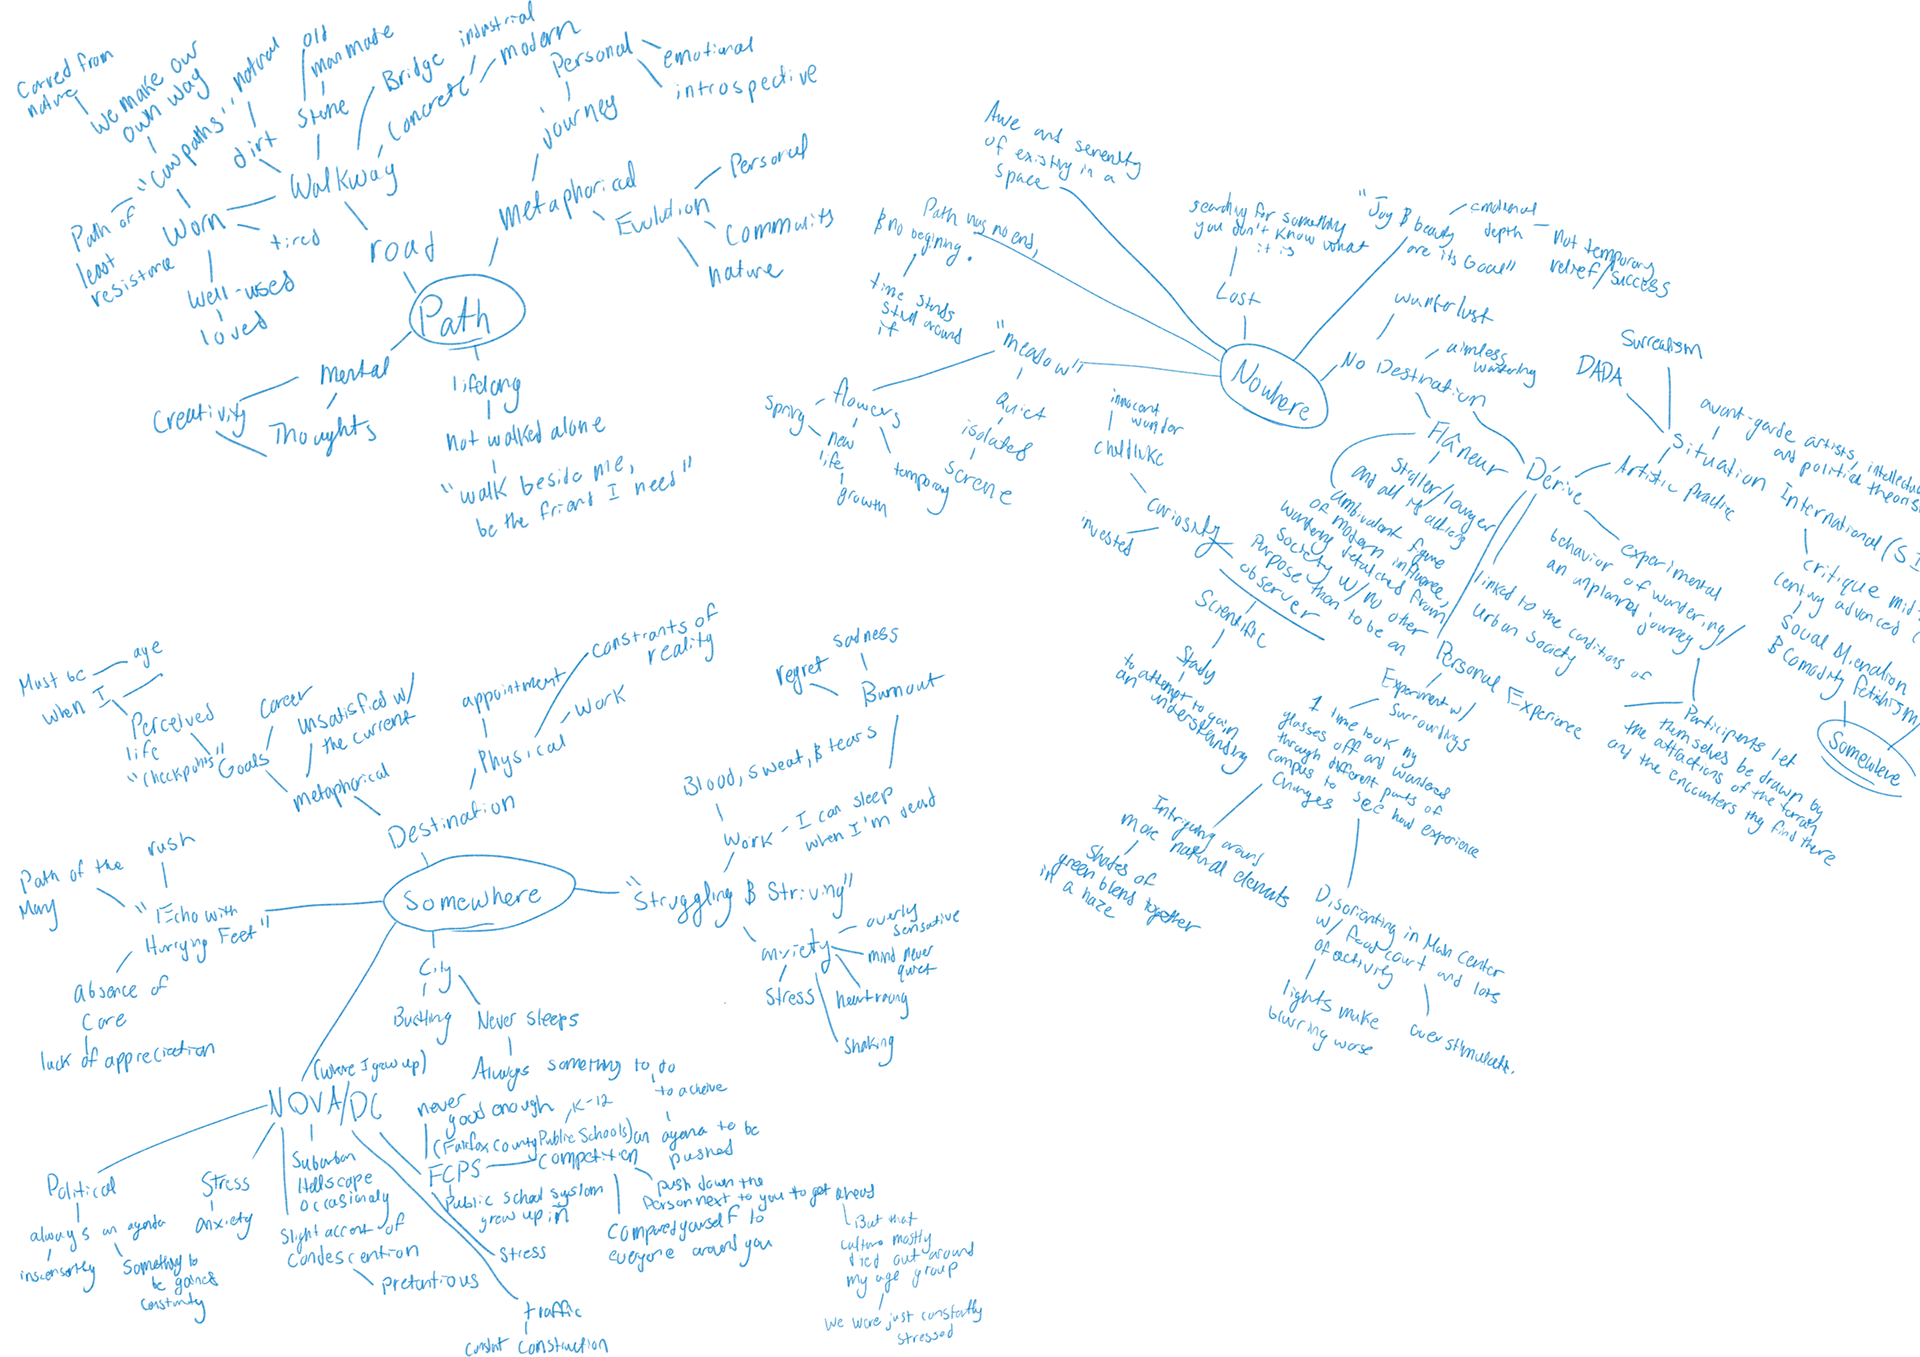 Carved from
nature
we make our
own way
"cowpaths"
natural
dirt
old
manmade
stone
Bridge
industrial
modern
Concrete
Walkway
Path of
least
resistance
Worn
tired
well-used
loved
road
Path
Personal
emotional
introspective
journey
metaphorical
Evolution
Personal
Community
nature
mental
Creativity
Thoughts
lifelong
not walked alone
"walk beside me,
be the friend I need"
Awe and serenity
of existing in a
space
Path has no end,
& no begining.
time stands
still around
it
searching for something
you don't know what
it is
Lost
"Joy & beauty
are its Goal"
emotional
depth
Not temporary
relief/success
Nowhere
"meadow"
flowers
spring
new
life
growth
temporary
Quiet
isolated
serene
wanderlust
No Destination
aimless
wandering
Flâneur
Stroller/lounger
ambivalent figure
of modern influence,
wandering detatched from
Society w/ no other
Purpose than to be an
observer
curiosity
childlike
innocent
wonder
invested
Scientific
Study
to attempt to gain
an understanding
Dérive
Artistic practice
Situation International (S.I
DADA
Surrealism
avant-garde artists, intellectu
and political theoris
critique mid-
century advanced
Social Alienation
& Comodity fetishism
Somewhere
experimental
behavior of wandering/
an unplanned journey
linked to the conditions of
urban Society
Participants let
themselves be drawn by
the attractions of the terrain
and the encounters they find there
Personal Experience
Experiment w/
Surroundings
1 time took my
glasses off and wandered
through different parts of
campus to see how experience
Changes
Intriguing around
more natural elements
Shades of
green blend together
in a haze
Disorienting in Main Center
w/ food court and lots
of activity
lights make
blurring worse
overstimulate.
Must be
age
when I
Perceived
life
"checkpoints"
Goals
career
unsatisfied w/
the current
metaphorical
appointment
constrants of
reality
work
Physical
Destination
Somewhere
rush
Path of the
Many
"Echo with
Hurrying Feet"
absence of
Care
lack of appreciation
"Struggling & Striving"
Work
Blood, sweat, & tears
I can sleep
when I'm dead
Burnout
sadness
regret
anxiety
overly
sensative
mind never
quiet
heart racing
Shaking
Stress
City
Bustling
Never sleeps
Always something to do
to acheive
(where I grew up)
NOVA/DC
Political
always an agenda
Something to
be gained
constantly
Stress
anxiety
Suburban
Hellscape
occasionaly
Slight accent of
condescention
pretentious
never
good enough
K-12
(Fairfox County Public Schools)
FCPS
Public school system
grew up in
competition
an agenda to be
pushed
push down the
person next to you to get ahead
Compared yourself to
everyone around you
But that
culture mostly
died out around
my age group
We were just constantly
stressed
stress
traffic
constant construction